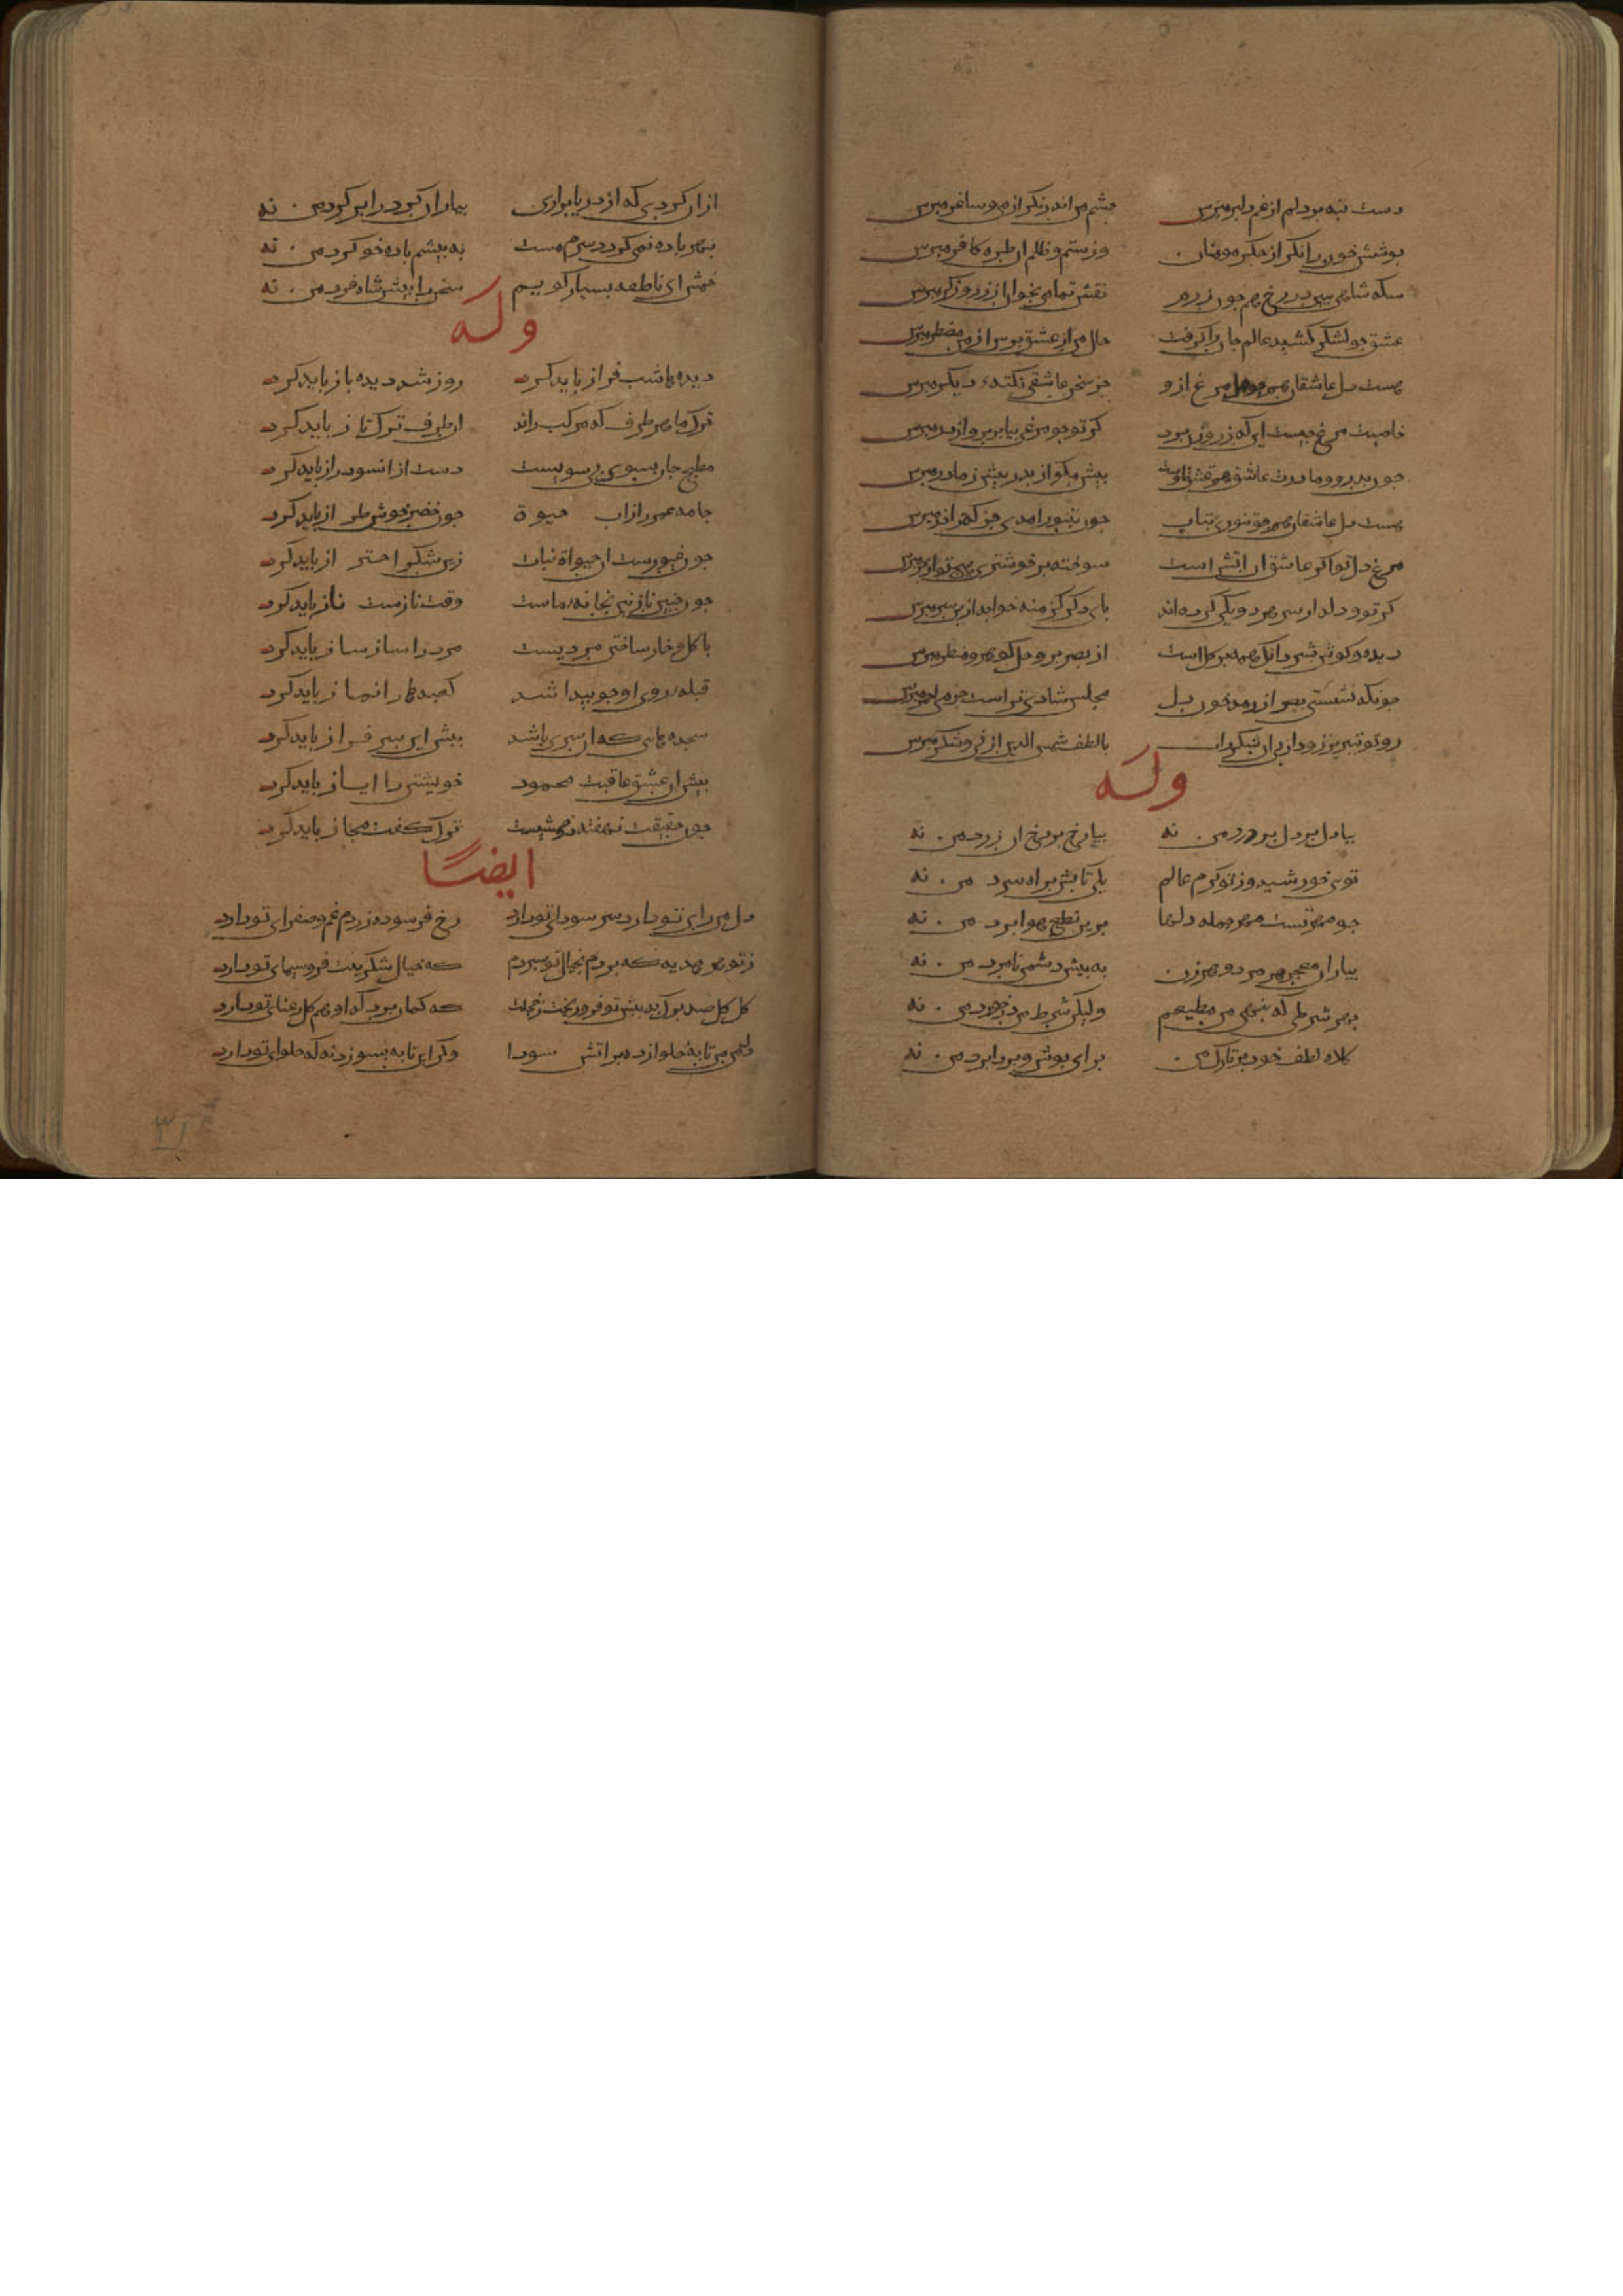 دست بنه بر دلم از غم دلبر مپرس چشم من اندر نگر از می و ساغر مپرس
جوشش خون را نگر از جگر مومنان وز ستم و ظلم آن طره کافر مپرس
سکه شاهی ببین در رخ همچون زرم نقش تمامی بخوان از زر و زرگر مپرس
عشق چو لشکر کشید عالم جان را گرفت حال من از عشق پرس از من مضطر مپرس
هست دل عاشقان همچو دل مرغ ازو جز سخن عاشقی نکتهٔ دیگر مپرس
خاصیت مرغ چیست آن که ز روزن پرد گر تو چو مرغی بیا بر پر و از در مپرس
چون پدر و مادرت عاشق هم عشق اوست بیش مگو از پدر بیش ز مادر مپرس
هست دل عاشقان همچو تنوری بتاب چون بتنور آمدی جز که ز آذر مپرس
مرغ دل تو اگر عاشق آن آتش است سوخته پر خوشتری هیچ تو از پر مپرس
گر تو و دلدار سر هر دو یکی کرده‌اند پای دگر کژ منه خواجه ازین سر مپرس
دیده و گوش بشر دان که همه پر گل است از بصر پر وحل گوهر و منظر مپرس
چونکه بشستی بصر از مدد خون دل مجلس شاهی تراست جز می احمر مپرس
رو تو بتبریز زود از پی این شکر را با لطف شمس الدین از می و شکر مپرس
وله
بیا دل بر دل پر درد من نه بیا رخ بر رخ آن زرد من نه
توی خورشید وز تو گرم عالم یکی تابش بر آه سرد من نه
چو مهره تست مهر جمله دلها برین نطع هوا برد من نه
بیار آن معجزهر مرد و هر زن به پیش دشمن نامرد من نه
بهر شرطی که بنهی من مطیعم ولیکن شرط من درخورد من نه
کلاه لطف خود بر تارک من برای بوش و بردابرد من نه
از آن گردی که از دریا برآری بیار آن گرد را بر گرد من نه
بهر باده نمی گردد سرم مست به پیشم باده خو کرد من نه
خمش ای ناطقه بسیار گویم سخن را پیش شاه فرد من نه
وله
دیده‌ها شب فراز باید کرد روز شد دیده باز باید کرد
ترک ما هر طرف که مرکب راند آن طرف ترک تاز باید کرد
مطبخ جان بسوی بی سویست دست از آنسو دراز باید کرد
جامه عمر را ز آب حیوة چون خضر خوش طراز باید کرد
چون غیورست آن حیوة نبات زین شکر احتراز باید کرد
چون چنین نازنین بخانهٔ ماست وقت نازست ناز باید کرد
با گل و خار ساختن مردیست مرد را ساز ساز باید کرد
قبلهٔ روی او چو پیدا شد کعبه‌ها را نماز باید کرد
سجده‌هایی که آن سری باشد پیش این سر فراز باید کرد
پیش آن عشق عاقبت محمود خویشتن را ایاز باید کرد
چون حقیقت نهفته در خمشیست ترک گفت مجاز باید کرد
ایضا
دل من رای تو دارد سر سودای تو دارد رخ فرسوده زردم غم و صفرای تو دارد
ز تو هر هدیه که بردم بخیال تو سپردم که خیال شکرینت فر و سیمای تو دارد
گل گل صد برگ به پیش تو فرو ریخت ز خجلت که گمان برد که او هم گل رعنای تو دارد
دلم من تابهٔ حلوا ز در بر آتش سودا وگر این تابه بسوزد نه که حلوای تو دارد